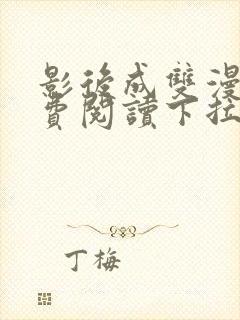 影後成雙漫
費閱讀下拉
丁梅